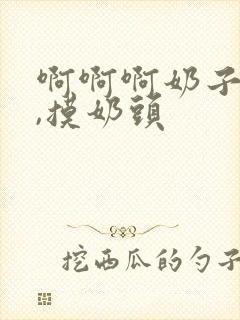 啊啊啊奶子
,摸奶頭
挖西瓜的勺子